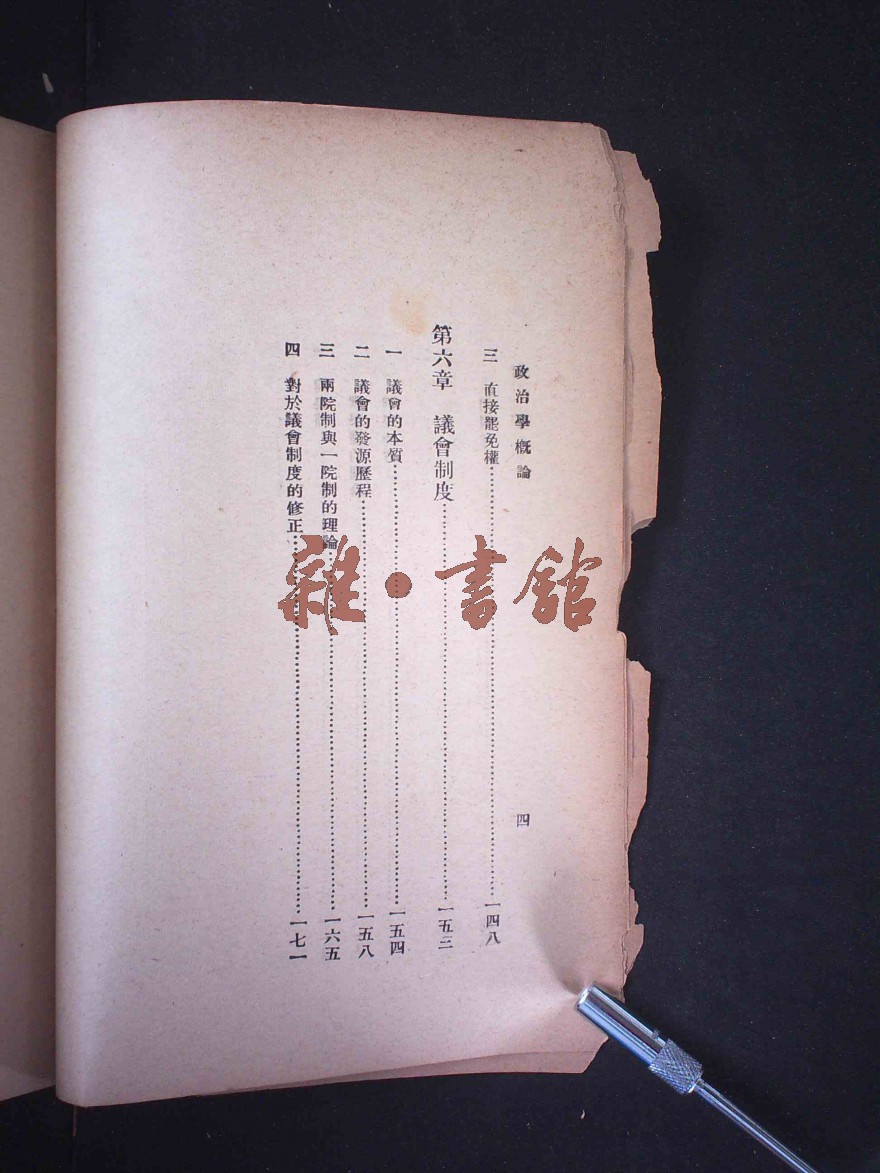 政治學概論
四
三　直接罷免權……一四八
第六章　議會制度……一五三
一　議會的本質……一五四
二　議會的發源歷程……一五八
三　兩院制與一院制的理論……一六五
四　對於議會制度的修正……一七一
雜·書館